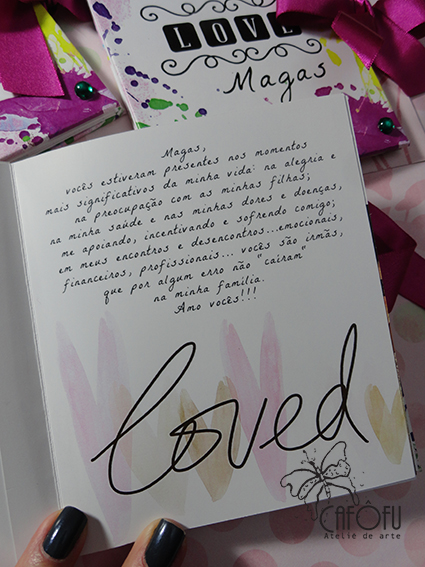 LOVE
Magas
Magas,
vocês estiveram presentes nos momentos
mais significativos da minha vida: na alegria e
na preocupação com as minhas filhas;
na minha saúde e nas minhas dores e doenças,
me apoiando, incentivando e sofrendo comigo;
em meus encontros e desencontros...emocionais,
financeiros, profissionais... vocês são irmãs,
que por algum erro não "caíram"
na minha família.
Amo vocês!!!
loved
CAFÔFU
Ateliê de arte